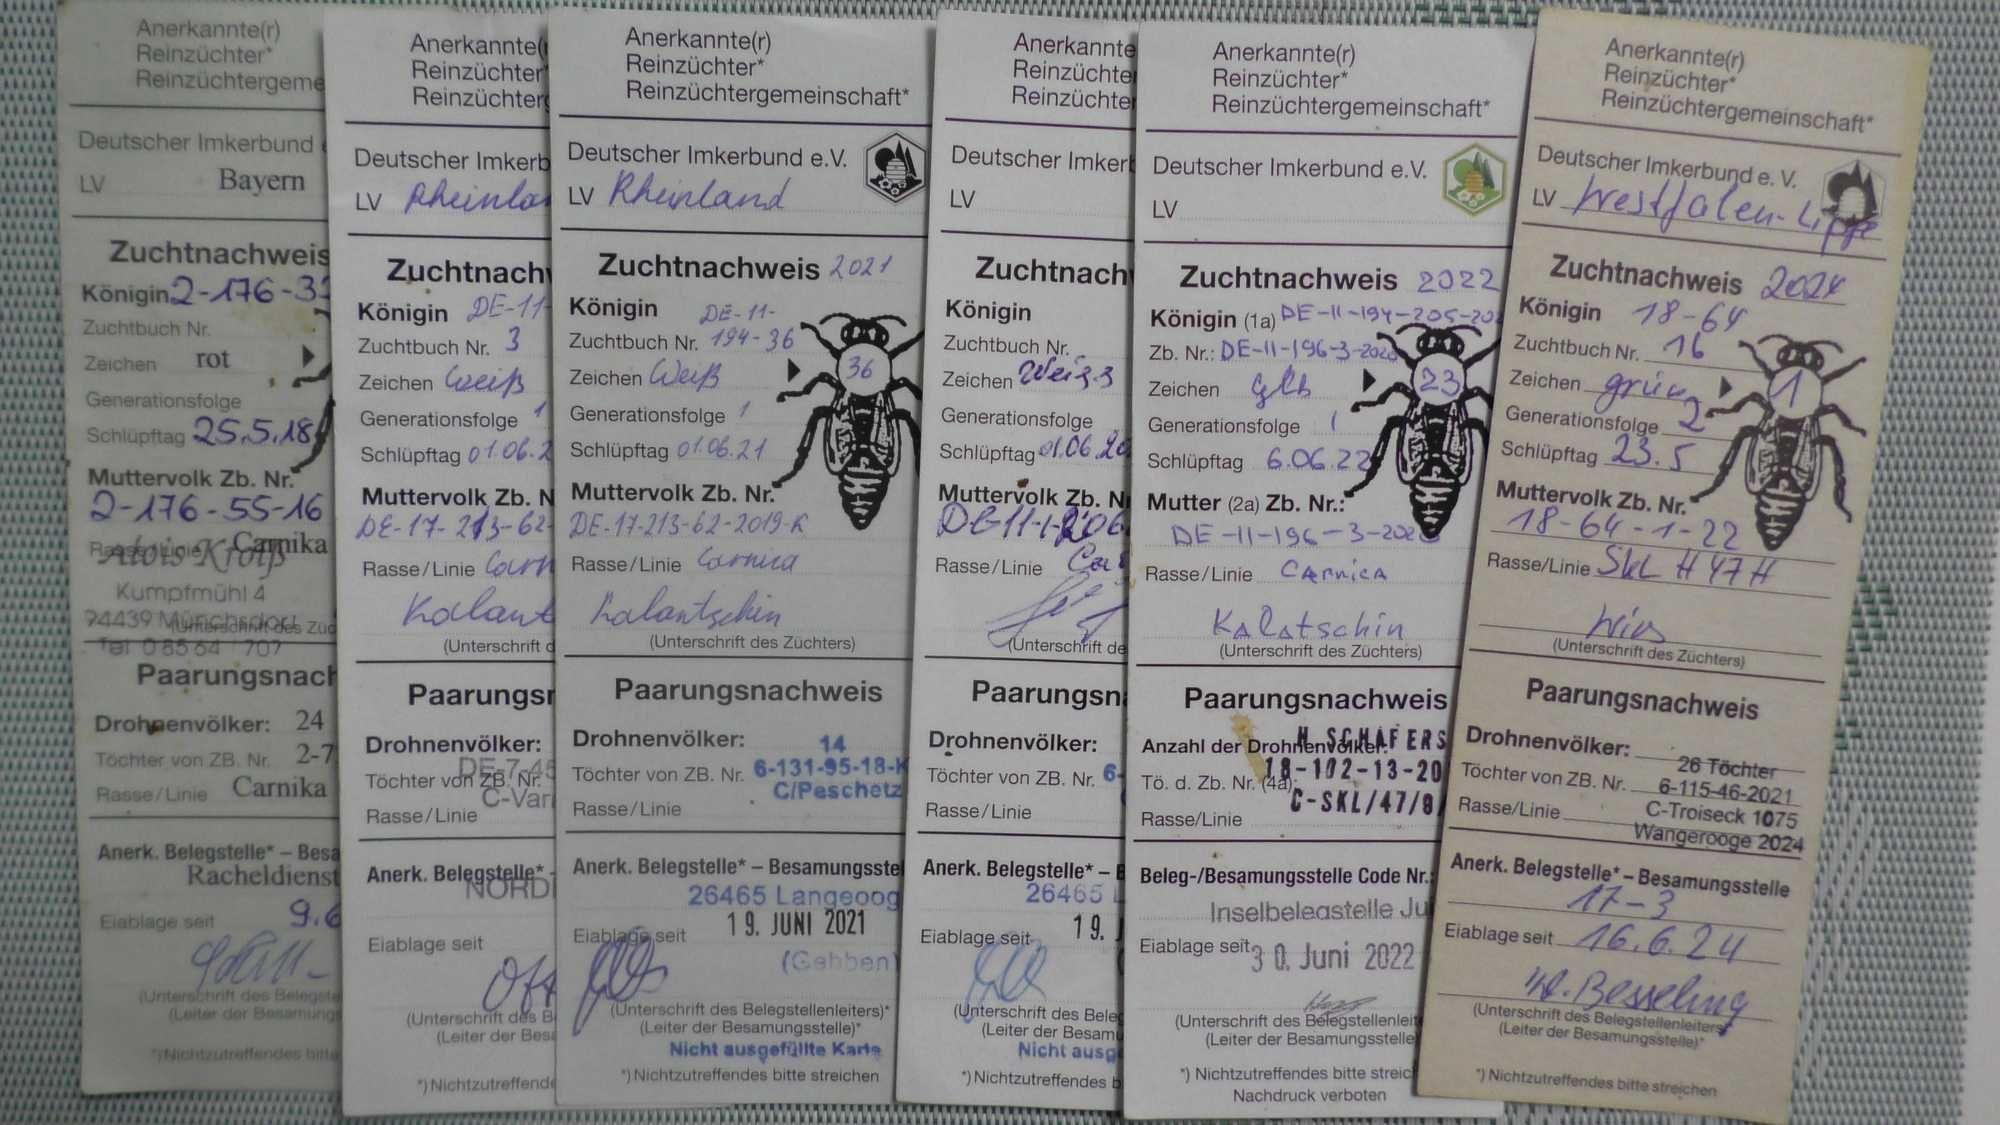 Anerkannte(r)
Reinzüchter*
Reinzüchtergeme
Deutscher Imkerbund
LV Bayern
Zuchtnachweis
Königin 2-176-33
Zuchtbuch Nr.
Zeichen rot
Generationsfolge
Schlüpftag 25.5.18
Muttervolk Zb. Nr.
2-176-55-16
Rasse/Linie Carnika
Kumpfmühl 4
94439 Münchsdorf
Paarungsnach
Drohnenvölker: 24
Töchter von ZB. Nr. 2-7
Rasse/Linie Carnika
Anerk. Belegstelle* – Besa
Racheldienst
Eiablage seit 9.6
(Unterschrift des Belegste
(Leiter der Besamungs
*)Nichtzutreffendes bitte
Anerkannte(r
Reinzüchter*
Reinzüchterg
Deutscher Imkerb
LV Rheinlan
Zuchtnachw
Königin DE-11-
Zuchtbuch Nr. 3
Zeichen Weiß
Generationsfolge 1
Schlüpftag 01.06.2
Muttervolk Zb. N
DE-17-213-62-
Rasse/Linie Carn
Kalant
(Unterschrift d
Paarungsn
Drohnenvölker:
DE-7-45
Töchter von ZB. Nr.
C-Var
Rasse/Linie
Anerk. Belegstelle* -
NORD
Eiablage seit
(Unterschrift des B
(Leiter der Besa
*) Nichtzutreffende
Anerkannte(r)
Reinzüchter*
Reinzüchtergemeinschaft*
Deutscher Imkerbund e.V.
LV Rheinland
Zuchtnachweis 2021
Königin DE-11-
Zuchtbuch Nr. 194-36
36
Zeichen Weiß
Generationsfolge 1
Schlüpftag 01.06.21
Muttervolk Zb. Nr.
DE-17-213-62-2019-K
Rasse/Linie Carnica
Kalantschin
(Unterschrift des Züchters)
Paarungsnachweis
Drohnenvölker: 14
Töchter von ZB. Nr. 6-131-95-18-K
C/Peschetz
Rasse/Linie
Anerk. Belegstelle* – Besamungsstel
26465 Langeoog
19. JUNI 2021
Eiablage seit
(Gehben)
(Unterschrift des Belegstellenleiters)*
(Leiter der Besamungsstelle)*
Nicht ausgefüllte Karte
*) Nichtzutreffendes bitte streichen
Anerkannte
Reinzüchte
Reinzüchte
Deutscher Imker
LV
Zuchtnach
Königin
Zuchtbuch Nr.
Zeichen
Generationsfolge
Schlüpftag 01.06.20
Muttervolk Zb. N
Rasse/Linie
(Unterschrift de
Paarungsn
Drohnenvölker:
Töchter von ZB. Nr. 6-
Rasse/Linie
Anerk. Belegstelle* – B
26465 L
19.
Eiablage seit
(Unterschrift des Beleg
(Leiter der Besam
Nicht ausg
*) Nichtzutreffendes b
Anerkannte(r)
Reinzüchter*
Reinzüchtergemeinschaft*
Deutscher Imkerbund e.V.
LV
Zuchtnachweis 2022
Königin (1a) DE-11-194-205-202
Zb. Nr.: DE-11-196-3-2020
23
Zeichen glb
Generationsfolge 1
Schlüpftag 6.06.22
Mutter (2a) Zb. Nr.:
DE-11-196-3-202
Rasse/Linie CArnicA
KalAtschin
(Unterschrift des Züchters)
Paarungsnachweis
H. SCHÄFERS
Anzahl der Drohnenvölker:
18-102-13-20
Tö. d. Zb. Nr. (4a):
C-SKL/47/9/
Rasse/Linie
Beleg-/Besamungsstelle Code Nr.:
Inselbelegstelle Ju
Eiablage seit 30. Juni 2022
(Unterschrift des Belegstellenleit
(Leiter der Besamungsstelle
*) Nichtzutreffendes bitte streic
Nachdruck verboten
Anerkannte(r)
Reinzüchter*
Reinzüchtergemeinschaft*
Deutscher Imkerbund e. V.
LV Westfalen-Lippe
Zuchtnachweis 2024
Königin 18-64
Zuchtbuch Nr. 16
1
Zeichen grün
Generationsfolge 2
Schlüpftag 23.5
Muttervolk Zb. Nr.
18-64-1-22
Rasse/Linie SKL H47H
(Unterschrift des Züchters)
Paarungsnachweis
Drohnenvölker: 26 Töchter
Töchter von ZB. Nr. 6-115-46-2021
C-Troiseck 1075
Rasse/Linie
Wangerooge 2024
Anerk. Belegstelle* – Besamungsstelle
17-3
Eiablage seit 16.6.24
W. Besseling
(Unterschrift des Belegstellenleiters)
(Leiter der Besamungsstelle)*
*) Nichtzutreffendes bitte streichen